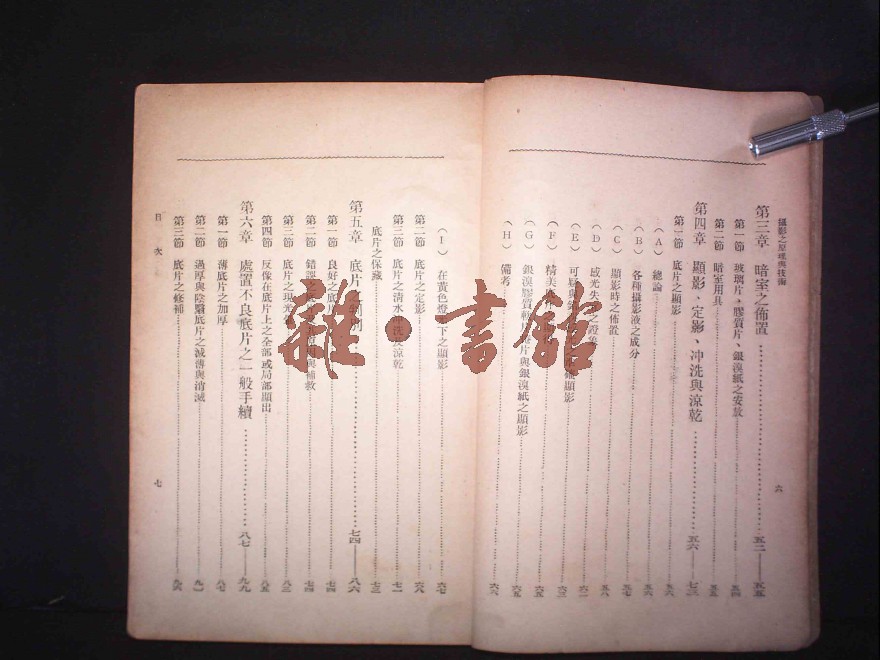 攝影之原理與技術
六
第三章 暗室之佈置 五二——五五
第一節 玻璃片、膠質片、銀溴紙之安放 五四
第二節 暗室用具 五五
第四章 顯影、定影、冲洗與涼乾 五六——七三
第一節 底片之顯影 五六
(A) 總論 五六
(B) 各種攝影液之成分 五七
(C) 顯影時之佈置 五八
(D) 感光失 六一
(E) 可疑與 顯影 六二
(F) 精美 六三
(G) 銀溴膠質 片與銀溴紙之顯影 六五
(H) 備考 六六
(I) 在黃色燈 下之顯影 六七
第二節 底片之定影 六八
第三節 底片之清水 涼乾 七一
底片之保藏 七三
第五章 底片之 七四——八六
第一節 良好之底 七四
第二節 錯誤之 與補救 七四
第三節 底片之現光 八三
第四節 反像在底片上之全部或局部顯出 八五
第六章 處置不良底片之一般手續 八七——九九
第一節 薄底片之加厚 八七
第二節 過厚與陰翳底片之減薄與消滅 九一
第三節 底片之修補 九六
目次
七
雜·書館